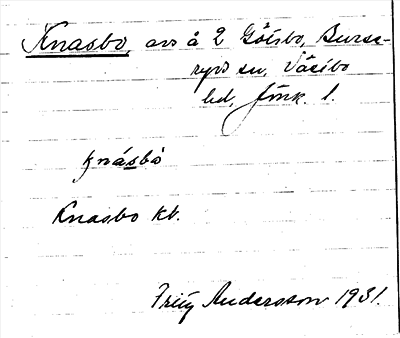 Knasbo, avs å 2 Götsbo, Burse-
ryds sn, Västbo
hd, Jönk. l.
knásbò
Knasbo kb.
Fritz Andersson 1931.